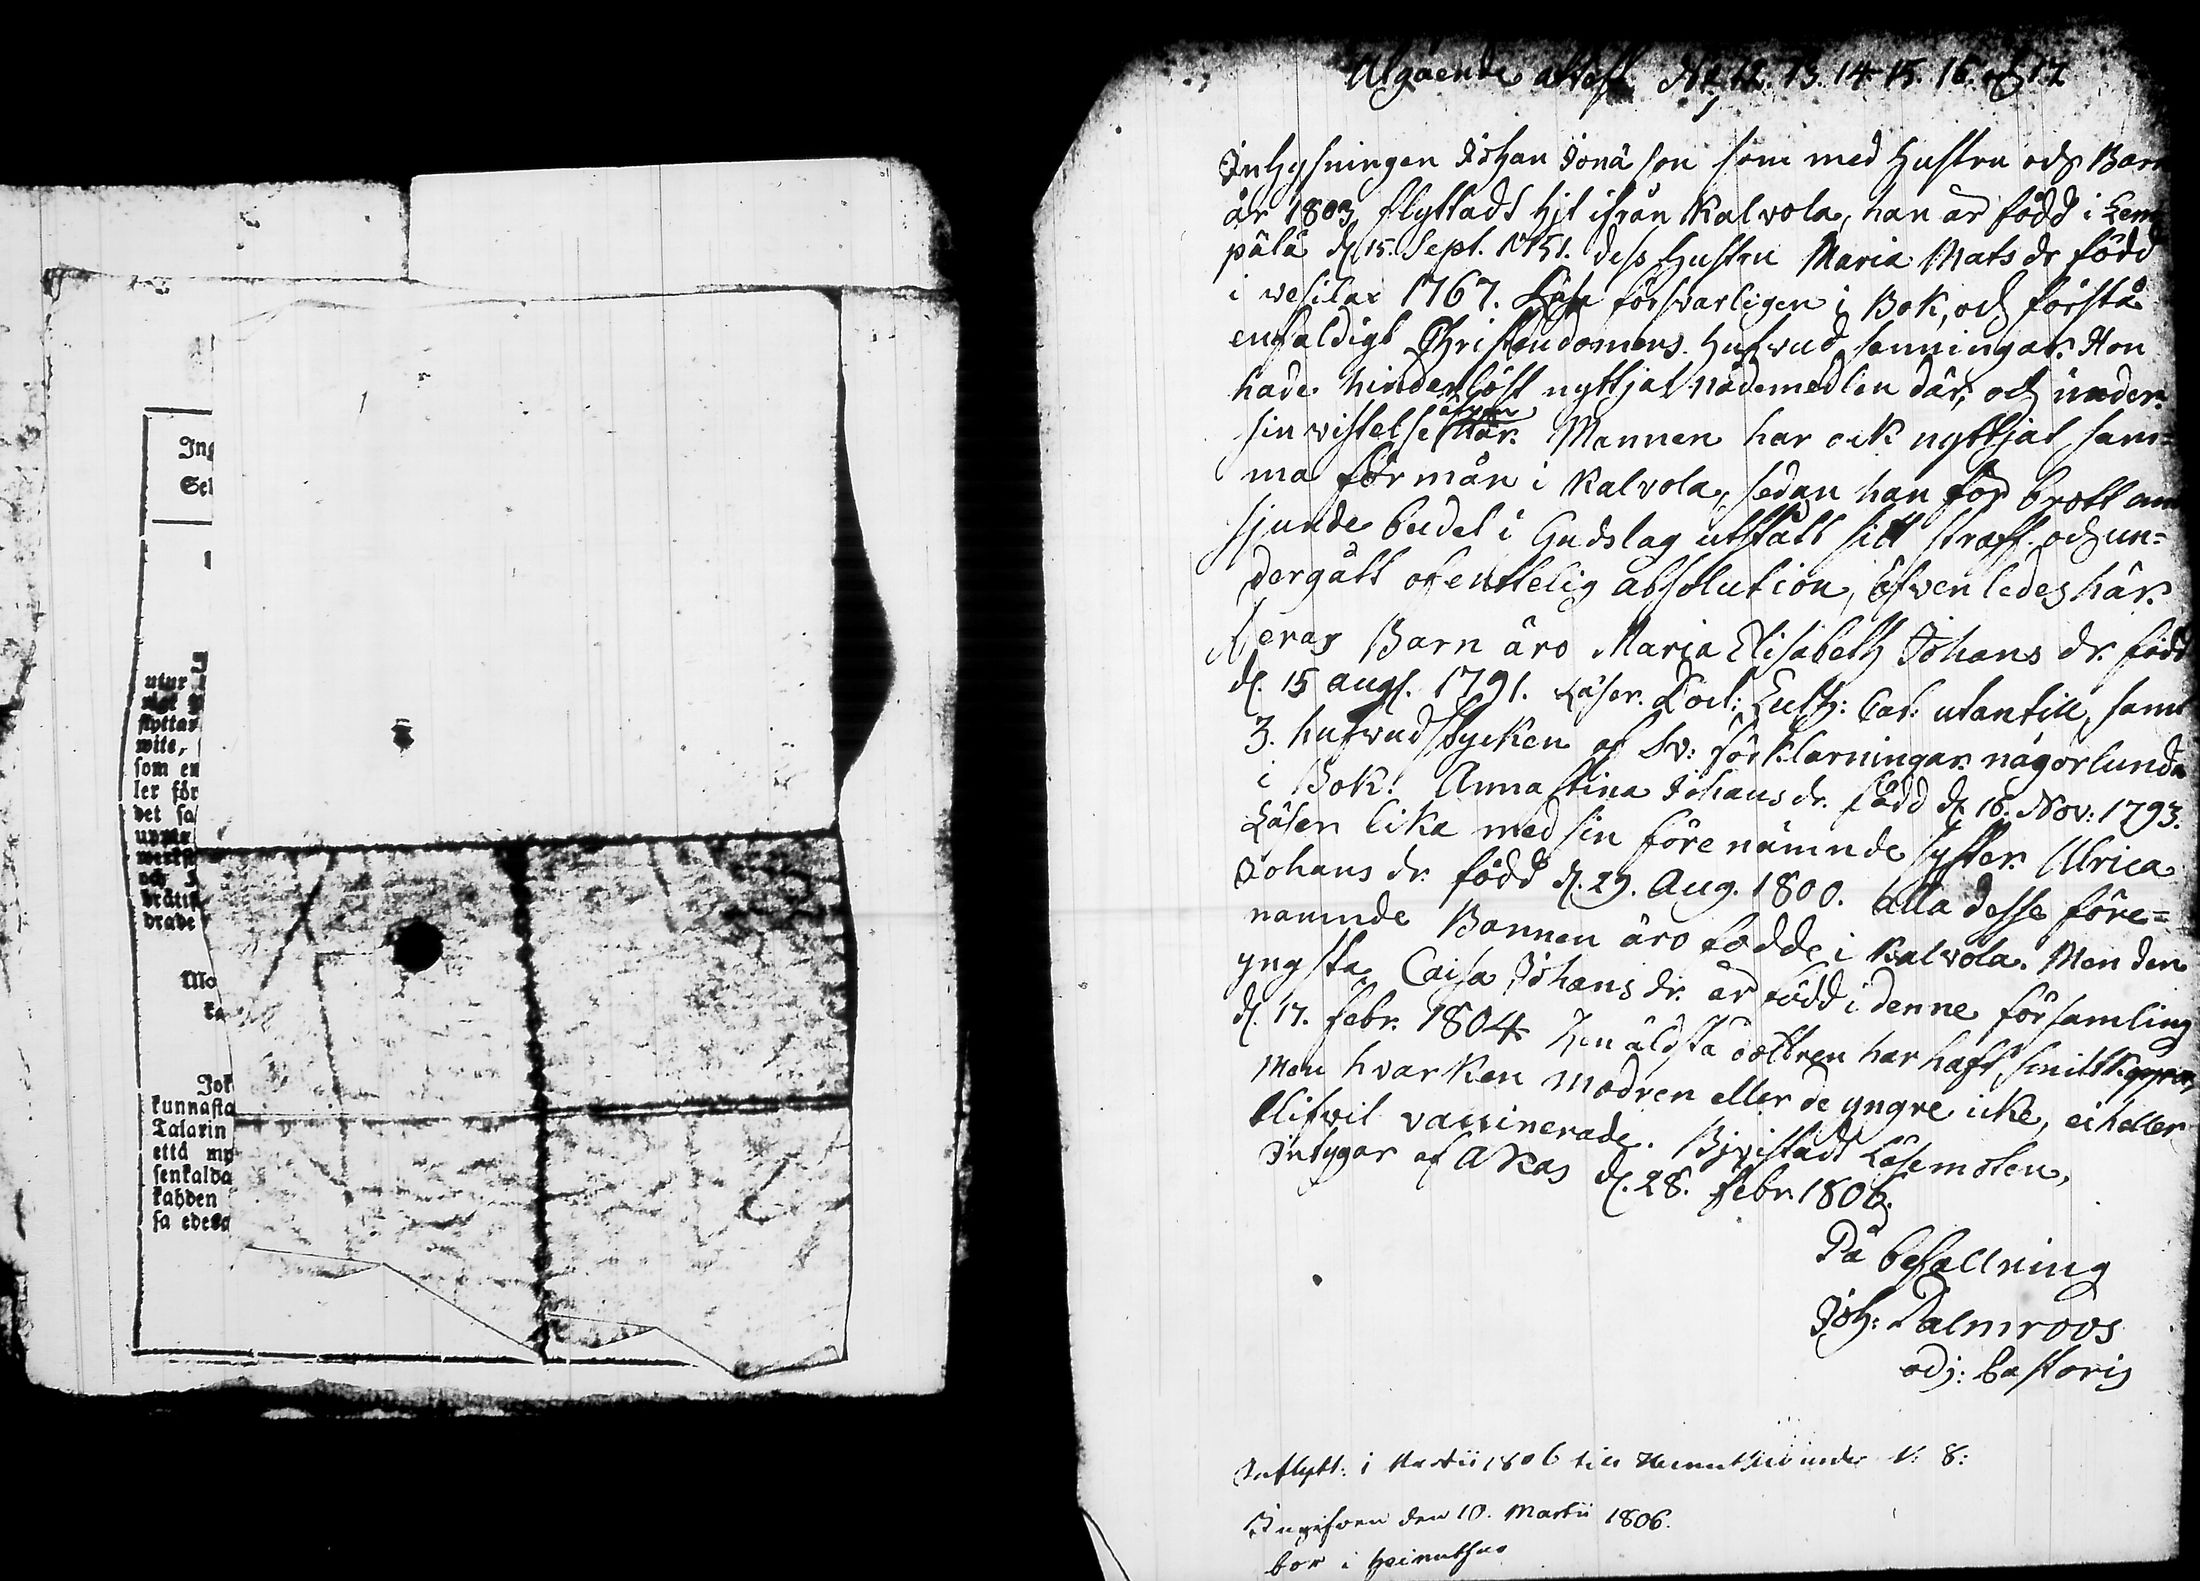 Ing
Sel
utur
flyttar
wite,
som en
ler för
det sa
och
drade
Mo
Jok
kunnasta
Talarin
että my
senkalda
kahden
sa edesä
Utgående attest N 12. 13. 14. 15. 16. och 17
Inhysningen Johan Jonä son som med hustru och Barn
år 1803 flyttadt hit ifrån Kalvola, han är född i Lem
pälä d. 15. Sept. 1751. dess Hustru Maria Mats dr född
i vesilax 1767. Läsa försvarligen i Bok, och förstå
enfaldigt Christendomens hufvud sanningar. Hon
hade hinderlöst nyttjat nådemedlen där, och under
sin vistelse äfven här. Mannen har ock nyttjat sam=
ma förmån i Kalvola, sedan han för brott om
sjunde budet i Gudslag utstått sitt straff och un=
dergått ofenttelig absolution, äfvenledes här.
Deras Barn äro Maria Elisabeth Johans dr. född
d. 15 aug. 1791. Läser Doct: Luth: Cat: utantill, samt
3. hufvudstycken af Sv: förklarningar någorlunda
i Bok. Anna Stina Johans dr. född d. 16. Nov: 1793.
Läser lika med sin förenämnde syster. Ulrica
Johans dr. född d. 29. Aug. 1800. alla desse före=
nämnde Barnen äro födde i Kalvola. Men den
yngsta Caisa Johans dr. är född i denne församling
d. 17. febr. 1804. Den äldsta dottren har haft smittkoppor,
Men hvarken modren eller de yngre icke, ei heller
blifvit vaccinerade. Bivistadt Läsemöten,
Intygar af Akas d. 28. febr 1806.
På befallning
Joh: Palmroos
adj: Pastoris
Inflytt: i Martii 1806 till under N: 8:
Ingifven den 10. Martii 1806.
bor i